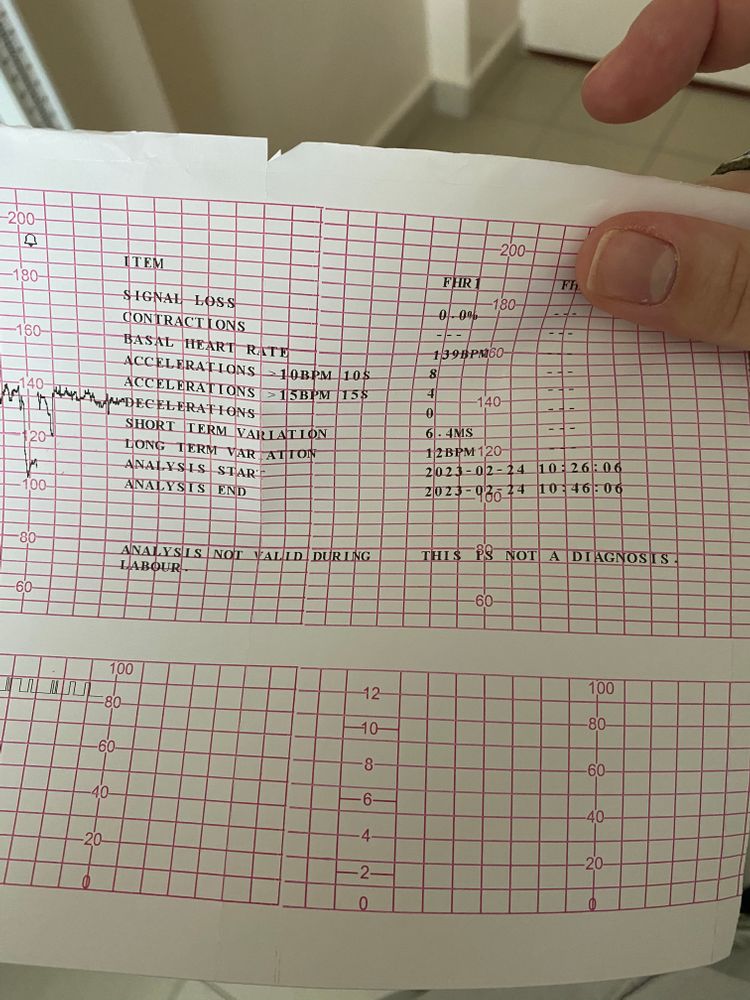 ITEM FHR1
SIGNAL LOSS 0.0% ---
CONTRACTIONS --- ---
BASAL HEART RATE 139BPM ---
ACCELERATIONS >10BPM 10S 8 ---
ACCELERATIONS >15BPM 15S 4 ---
DECELERATIONS 0 ---
SHORT TERM VARIATION 6.4MS ---
LONG TERM VARIATION 12BPM ---
ANALYSIS START 2023-02-24 10:26:06
ANALYSIS END 2023-02-24 10:46:06
ANALYSIS NOT VALID DURING THIS IS NOT A DIAGNOSIS.
LABOUR.
200
180
160
140
120
100
80
60
200
180
160
140
120
100
80
60
100
80
60
40
20
0
12
10
8
6
4
2
0
100
80
60
40
20
0